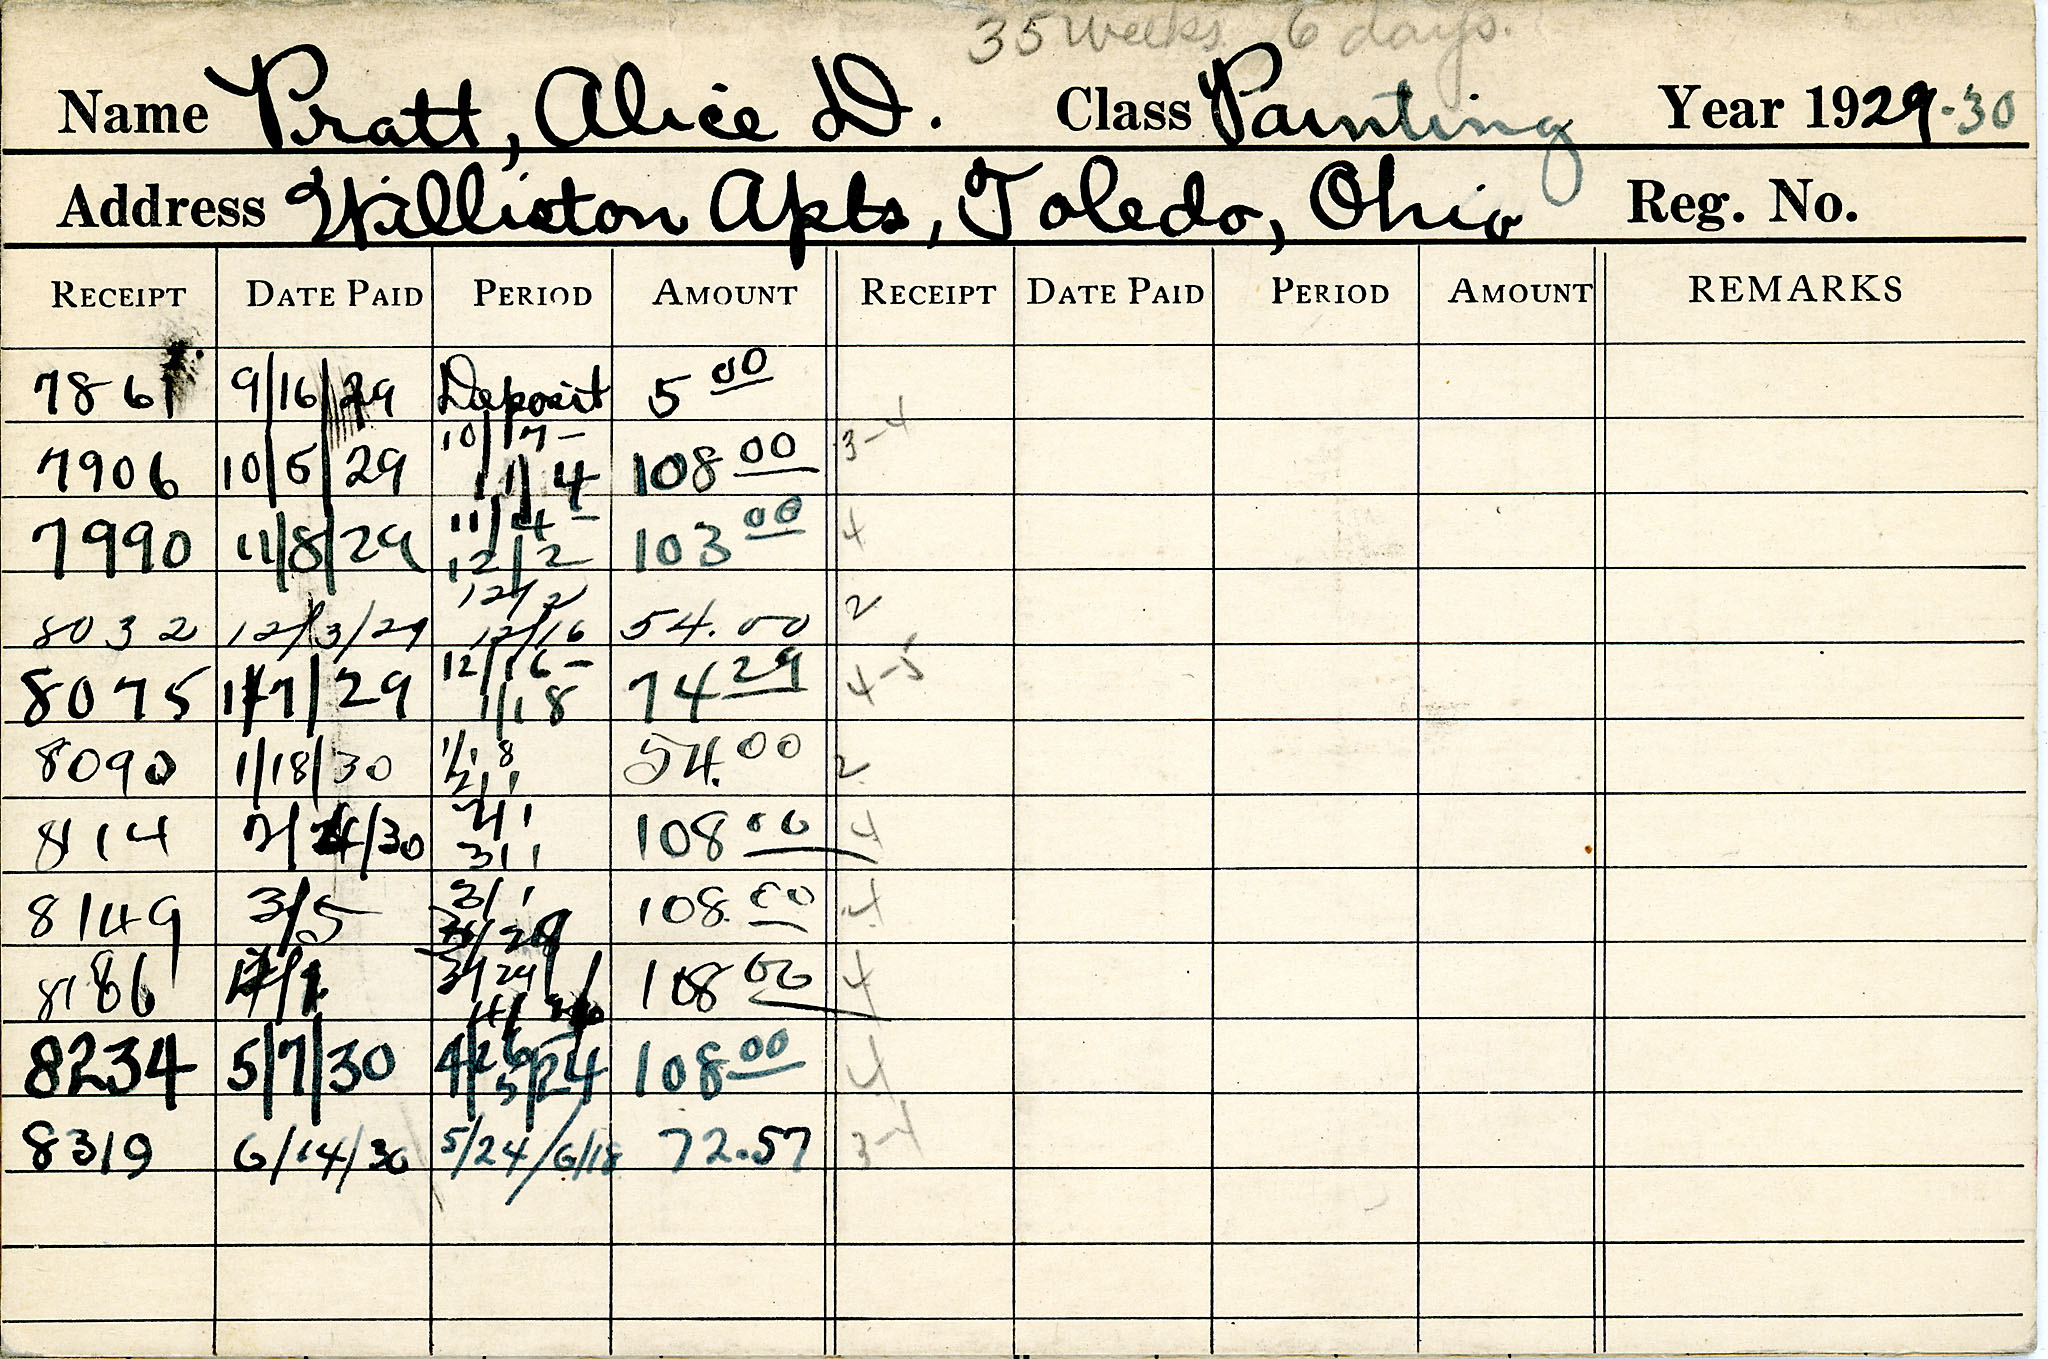 35 weeks 6 days.
Name Pratt, Alice D. Class Painting Year 1929-30
Address Williston Apts, Toledo, Ohio Reg. No.
RECEIPT DATE PAID PERIOD AMOUNT RECEIPT DATE PAID PERIOD AMOUNT REMARKS
7861 9/16/29 Deposit 5 00
7906 10/5/29 10/7- 11/4 108 00 3-4
7990 11/8/29 11/4- 12/2 103 00 4
8032 12/3/29 12/2 12/16 54.00 2
8075 1/7/29 12/16- 1/18 74 29 4-5
8090 1/18/30 1/18 2/1 54.00 2
8114 2/4/30 2/1 3/1 108 00 4
8149 3/5 3/1 3/29 108.00 4
8186 3/29 108 00 4
8234 5/7/30 4/26 5/24 108 00 4
8319 6/14/30 5/24/6/18 72.57 3-4